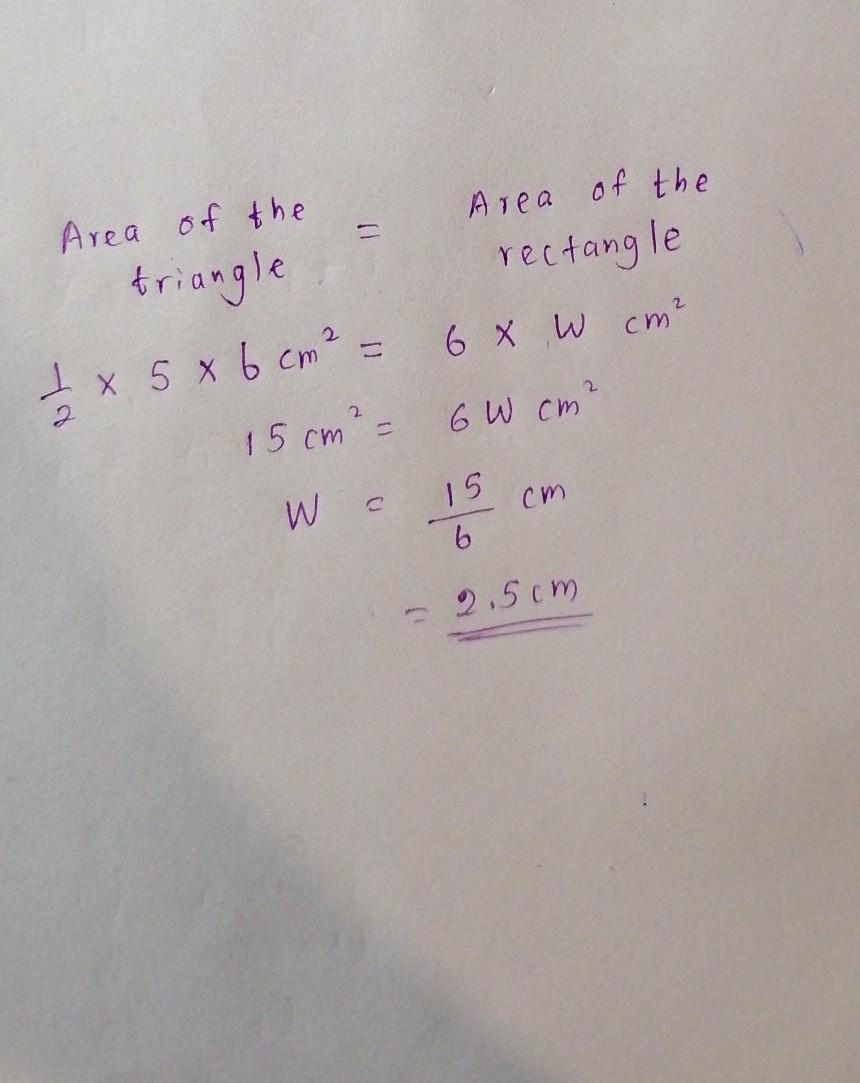 Area of the triangle = Area of the rectangle
1/2 x 5 x 6 cm² = 6 x W cm²
15 cm² = 6 W cm²
W = 15/6 cm
= 2.5 cm